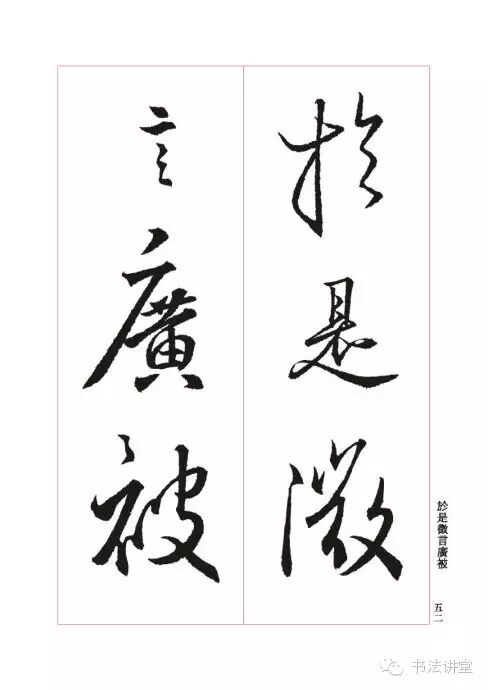 於是微
言廣被
於是微言廣被
五二
书法讲堂